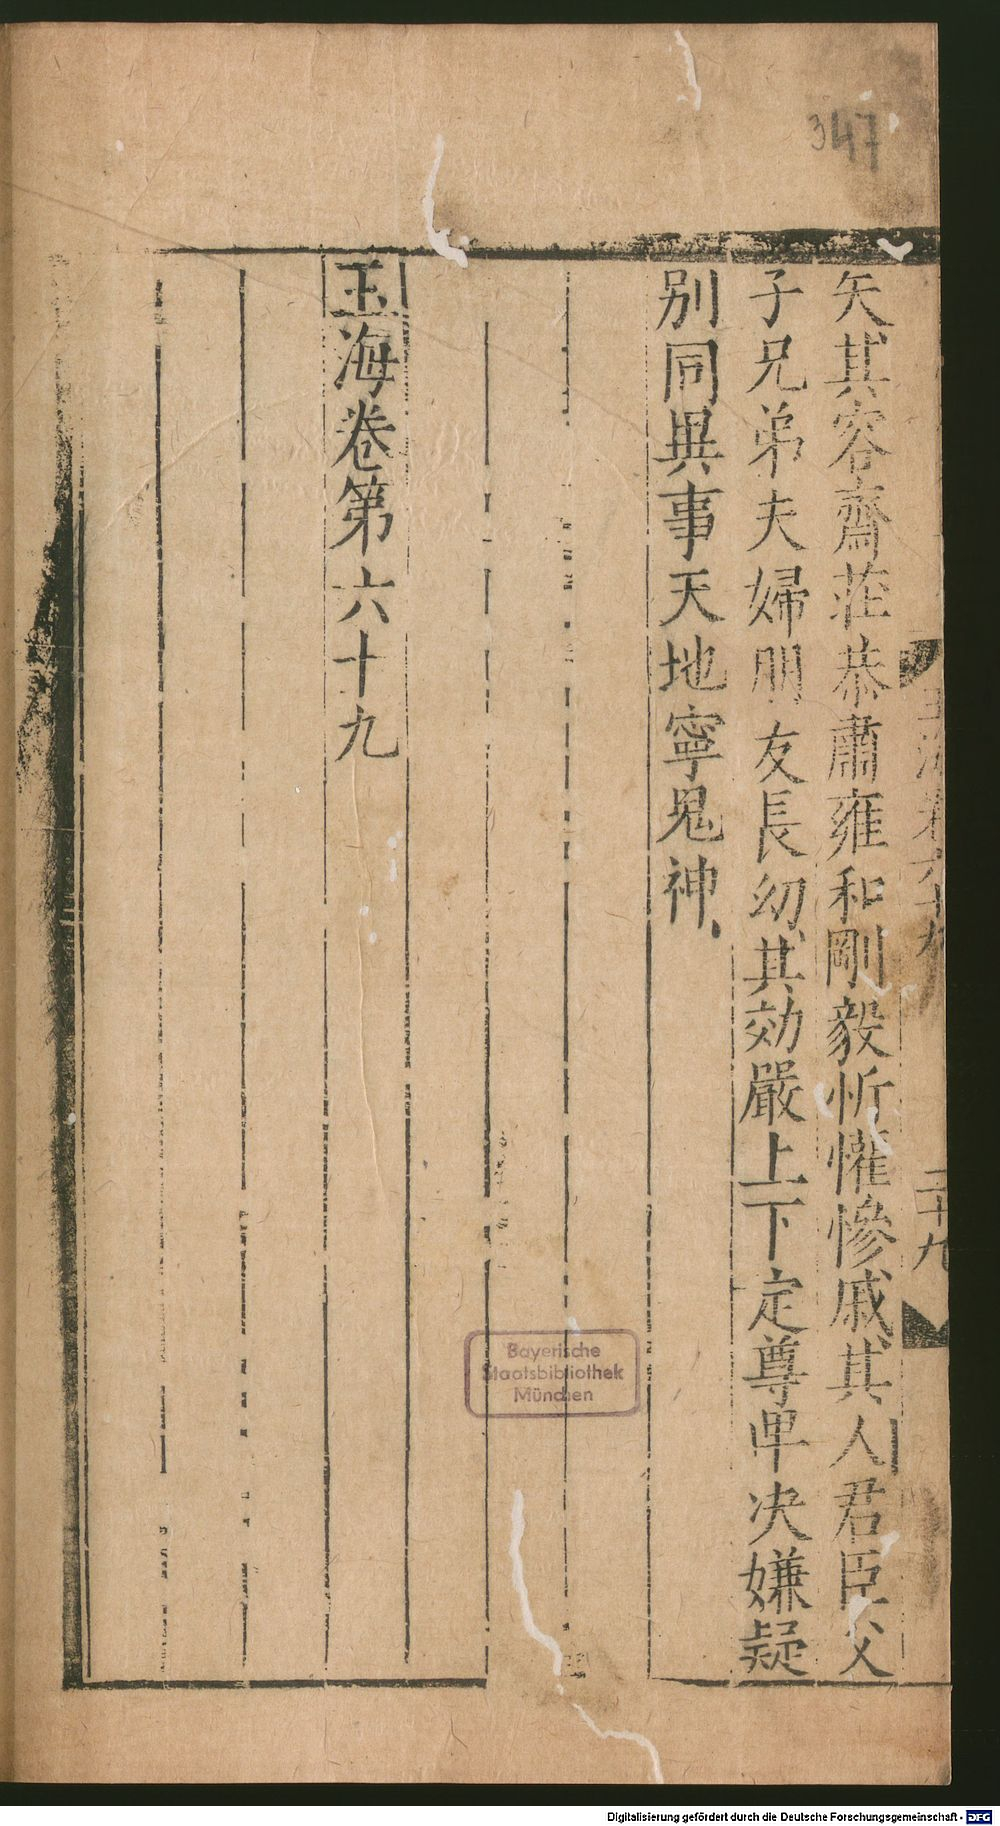 347
矢其容齋莊恭肅雍和剛毅忻懽慘戚其人君臣父
子兄弟夫婦朋友長幼其効嚴上下定尊卑决嫌疑
别同異事天地寧鬼神
玉海卷第六十九
玉海卷六十九
二十九
Bayerische
Staatsbibliothek
München
Digitalisierung gefördert durch die Deutsche Forschungsgemeinschaft - DFG